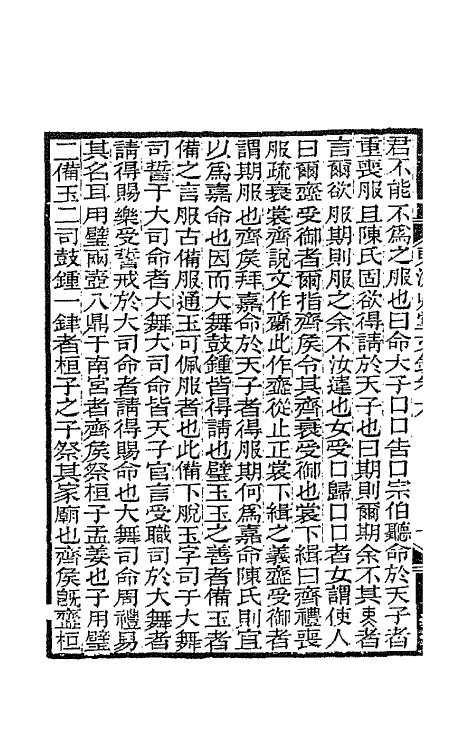 君不能不為之服也曰命大子口口告口宗伯聽命於天子者
重喪服且陳氏固欲得請於天子也曰期則爾期余不其叓者
言爾欲服期則服之余不汝違也女受口歸口口者女謂使人
曰爾齍受御者爾指齊矦令其齊衰受御也裳下緝曰齊禮喪
服疏衰裳齊說文作齌此作齍從止正裳下緝之義齍受御者
謂期服也齊矦拜嘉命於天子者得服期何為嘉命陳氏則宜
以為嘉命也因而大舞鼓鍾皆得請也璧玉玉之善者備玉者
備之言服古備服通玉可佩服者也此備下脫玉字司于大舞
司誓于大司命者大舞大司命皆天子官言受職司於大舞者
請得賜樂受誓戒於大司命者請得賜命也大舞司命周禮易
其名耳用璧兩壺八鼎于南宮者齊矦祭桓子孟姜也子用璧
二備玉二司鼓鍾一銉者桓子之子祭其家廟也齊矦旣齍桓